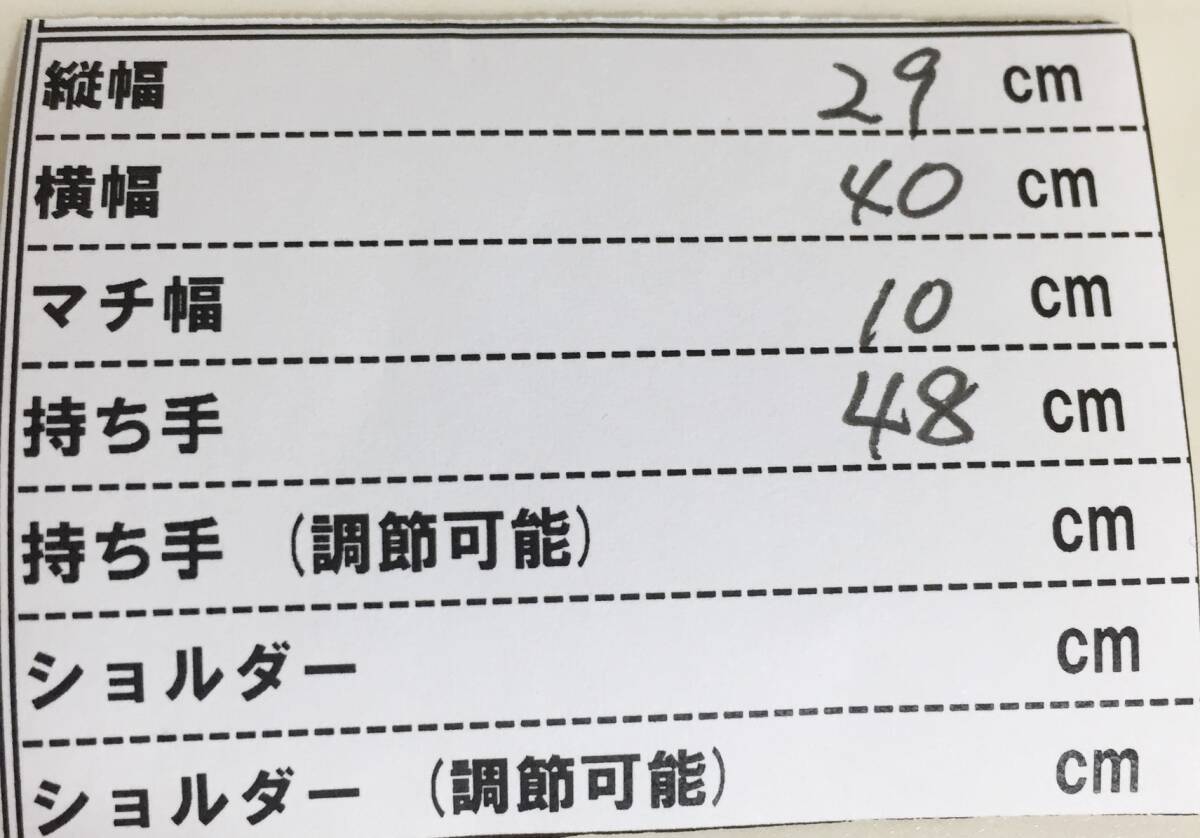 縦幅 29 cm
横幅 40 cm
マチ幅 10 cm
持ち手 48 cm
持ち手 (調節可能) cm
ショルダー cm
ショルダー (調節可能) cm